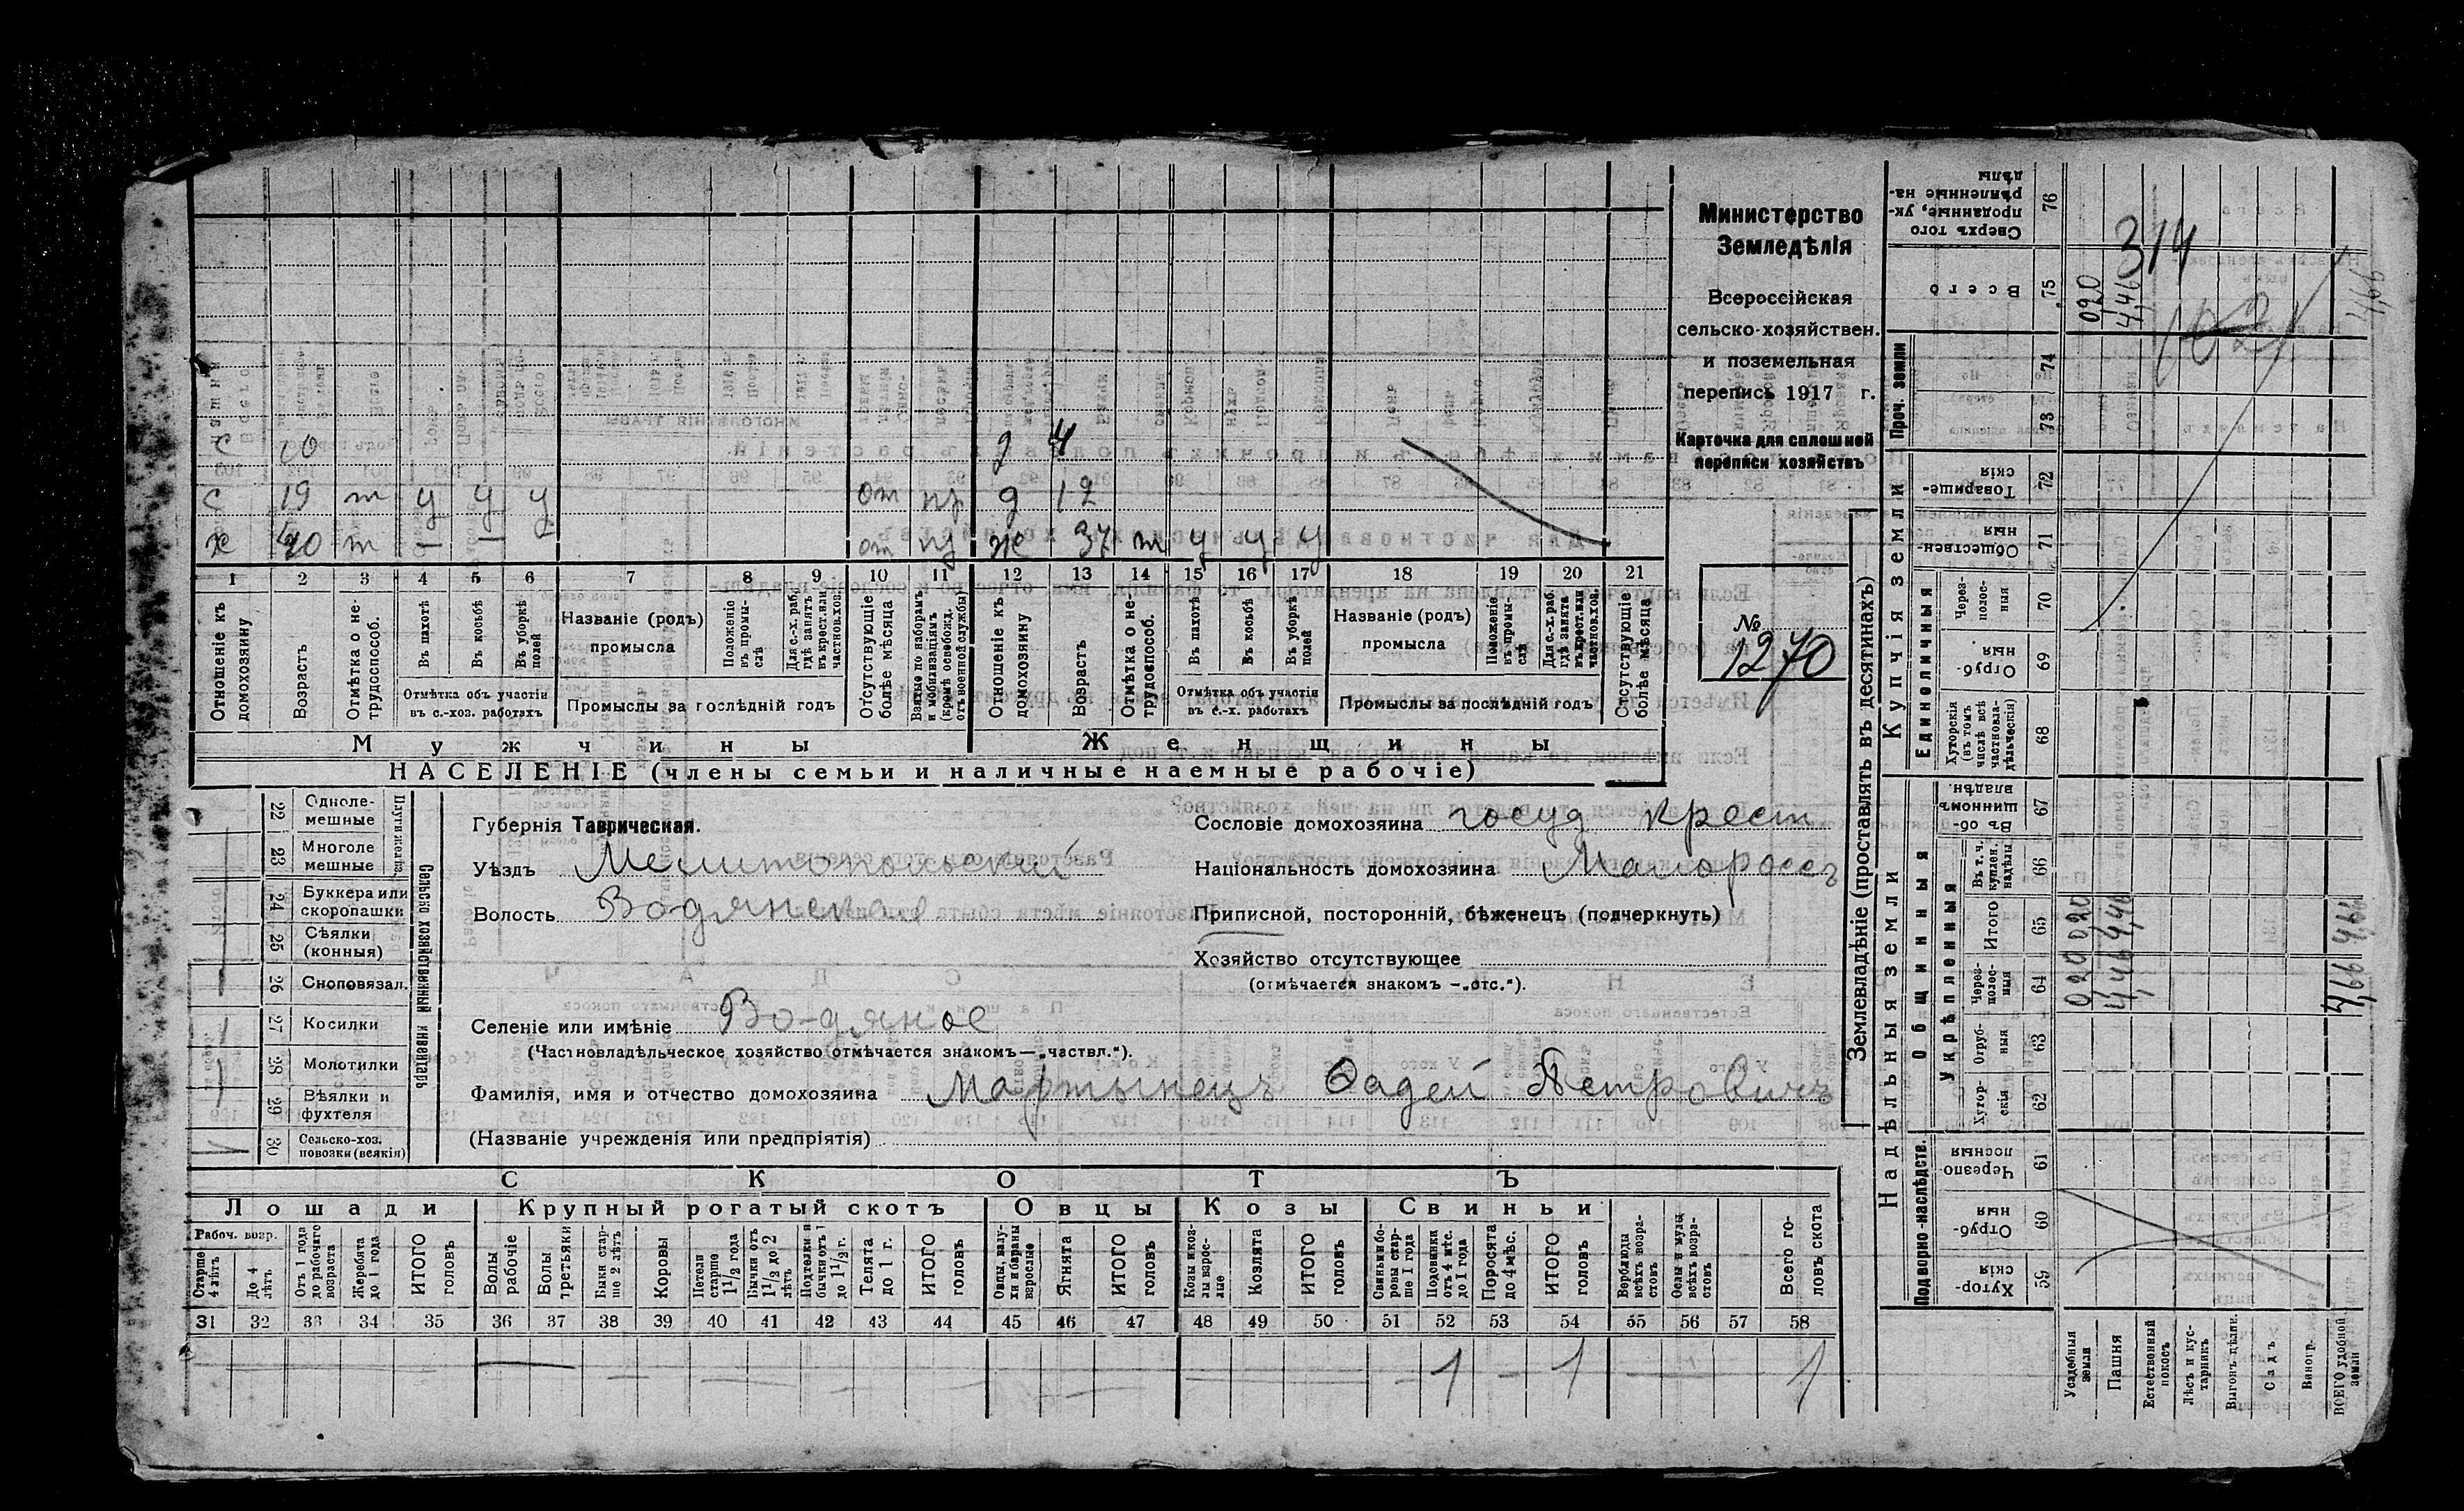 с 10 д 4
с 19 т у у у от пр д 12
х 40 т — — у от пр ж 37 т у у у
1 2 3 4 5 6 7 8 9 10 11 12 13 14 15 16 17 18 19 20 21
Отношеніе къ домохозяину
Возрастъ
Отмѣтка о не-трудоспособ.
Въ пахотѣ
Въ косьбѣ
Въ уборкѣ полей
Отмѣтка объ участіи въ с.-хоз. работахъ
Названіе (родъ) промысла
Положеніе въ промы-слѣ
Для с.-х. раб. гдѣ занятъ въ крест. или частнов. хоз.
Промыслы за послѣдній годъ
Отсутствующіе болѣе мѣсяца
Взятые по наборамъ и мобилизаціямъ (кромѣ освобожд. отъ военной службы)
Отношеніе къ домохозяину
Возрастъ
Отмѣтка о не-трудоспособ.
Въ пахотѣ
Въ косьбѣ
Въ уборкѣ полей
Отмѣтка объ участіи въ с.-х. работахъ
Названіе (родъ) промысла
Положеніе въ промы-слѣ
Для с.-х. раб. гдѣ занята въ крест. или частнов. хоз.
Промыслы за послѣдній годъ
Отсутствующіе болѣе мѣсяца
Мужчины
Женщины
НАСЕЛЕНІЕ (члены семьи и наличные наемные рабочіе)
Министерство
Земледѣлія
Всероссійская
сельско-хозяйствен.
и поземельная
перепись 1917 г.
Карточка для сплошной
переписи хозяйствъ
№
1270
22 Одноле-мешные
23 Многоле мешные
24 Буккера или скоропашки
25 Сѣялки (конныя)
26 Сноповязал.
27 Косилки
28 Молотилки
29 Вѣялки и фухтеля
30 Сельско-хоз. повозки (всякія)
Сельско хозяйственный инвентарь
Губернія Таврическая.
Уѣздъ Мелитопольский
Волость Водянская
Сословіе домохозяина госуд крест
Національность домохозяина Малороссъ
Приписной, посторонній, бѣженецъ (подчеркнуть)
Хозяйство отсутствующее
(отмѣчается знакомъ —„отс.“).
Селеніе или имѣніе Водяное
(Частновладѣльческое хозяйство отмѣчается знакомъ—„частвл.“).
Фамилія, имя и отчество домохозяина Мартынецъ Фадей Петровичъ
(Названіе учрежденія или предпріятія)
СКОТЪ
Лошади Крупный рогатый скотъ Овцы Козы Свиньи
Рабоч. возр.
Старше 4 лѣтъ
До 4 лѣтъ
Отъ 1 года до рабочаго возраста
Жеребята до 1 года
ИТОГО головъ
Волы рабочіе
Волы третьяки
Быки стар-ше 2 лѣтъ
Коровы
Нетели старше 1½ года
Бычки отъ 1½ до 2 лѣтъ
Подтелки и бычки отъ 1 до 1½ г.
Телята до 1 г.
ИТОГО головъ
Овцы, валу-хи и бараны взрослые
Ягнята
ИТОГО головъ
Козы и коз-лы взрос-лые
Козлята
ИТОГО головъ
Свиньи и бо-ровы стар-ше 1 года
Подсвинки отъ 4 мѣс. до 1 года
Поросята до 4 мѣс.
ИТОГО головъ
Верблюды всѣхъ возра-стовъ
Ослы и мулы всѣхъ возра-стовъ
Всего го-ловъ скота
31 32 33 34 35 36 37 38 39 40 41 42 43 44 45 46 47 48 49 50 51 52 53 54 55 56 57 58
1 1 1
Землевладѣніе (проставлять въ десятинахъ)
Надѣльныя земли
Купчія земли
Проч. земли
Подворно-наслѣдств.
Общинныя
Укрѣпленныя
Единоличныя
Сверхъ того проданные, ук-рѣпленные на-дѣлы 76
Всего 75
74
73
Товарище-скія 72
Обществен-ныя 71
Через-полос-ныя 70
Отруб-ныя 69
Хуторскія (въ томъ числѣ всѣ частновла-дѣльческія) 68
Въ об-щинномъ владѣн. 67
Въ т. ч. куплен. надѣлы 66
Итого 65
Через-полос-ныя 64
Отруб-ныя 63
Хутор-скія 62
Черезпо лосныя 61
Отруб-ныя 60
Хутор-скія 59
Усадебныя земли
Пашня
Естественный покосъ
Лѣсъ и кус-тарникъ
Выгонъ цѣлин.
Садъ
Виногр.
ВСЕГО удобной земли
314
102
0,20 4,46 4,66
0,20 0,20
4,46 4,46
4,66 4,66